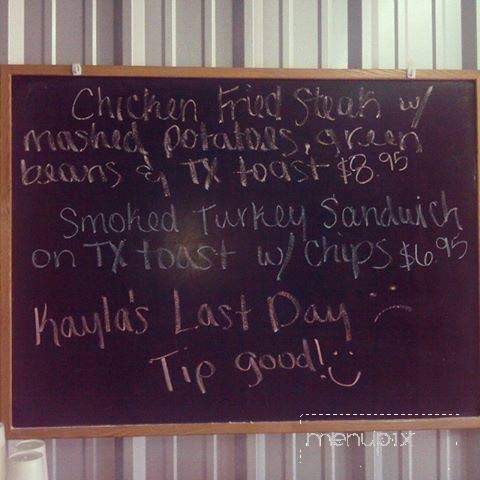 Chicken Fried Steak w/
mashed potatoes, green
beans & TX toast $8.95
Smoked Turkey Sandwich
on TX toast w/ Chips $6.95
Kayla's Last Day :(
Tip good! :)
menupix